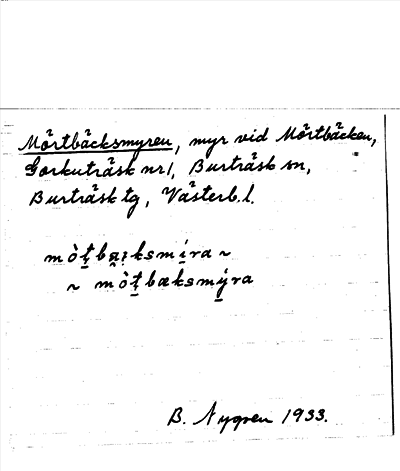 Mörtbäcksmyren, myr vid Mörtbäcken,
Gorkuträsk nr 1, Burträsk sn,
Burträsk tg, Västerb. l.
mò̀ṱba̤i̤ksmí̱ra ~
~ mò̀ṱbæksmý̱ra
B. Nygren 1933.